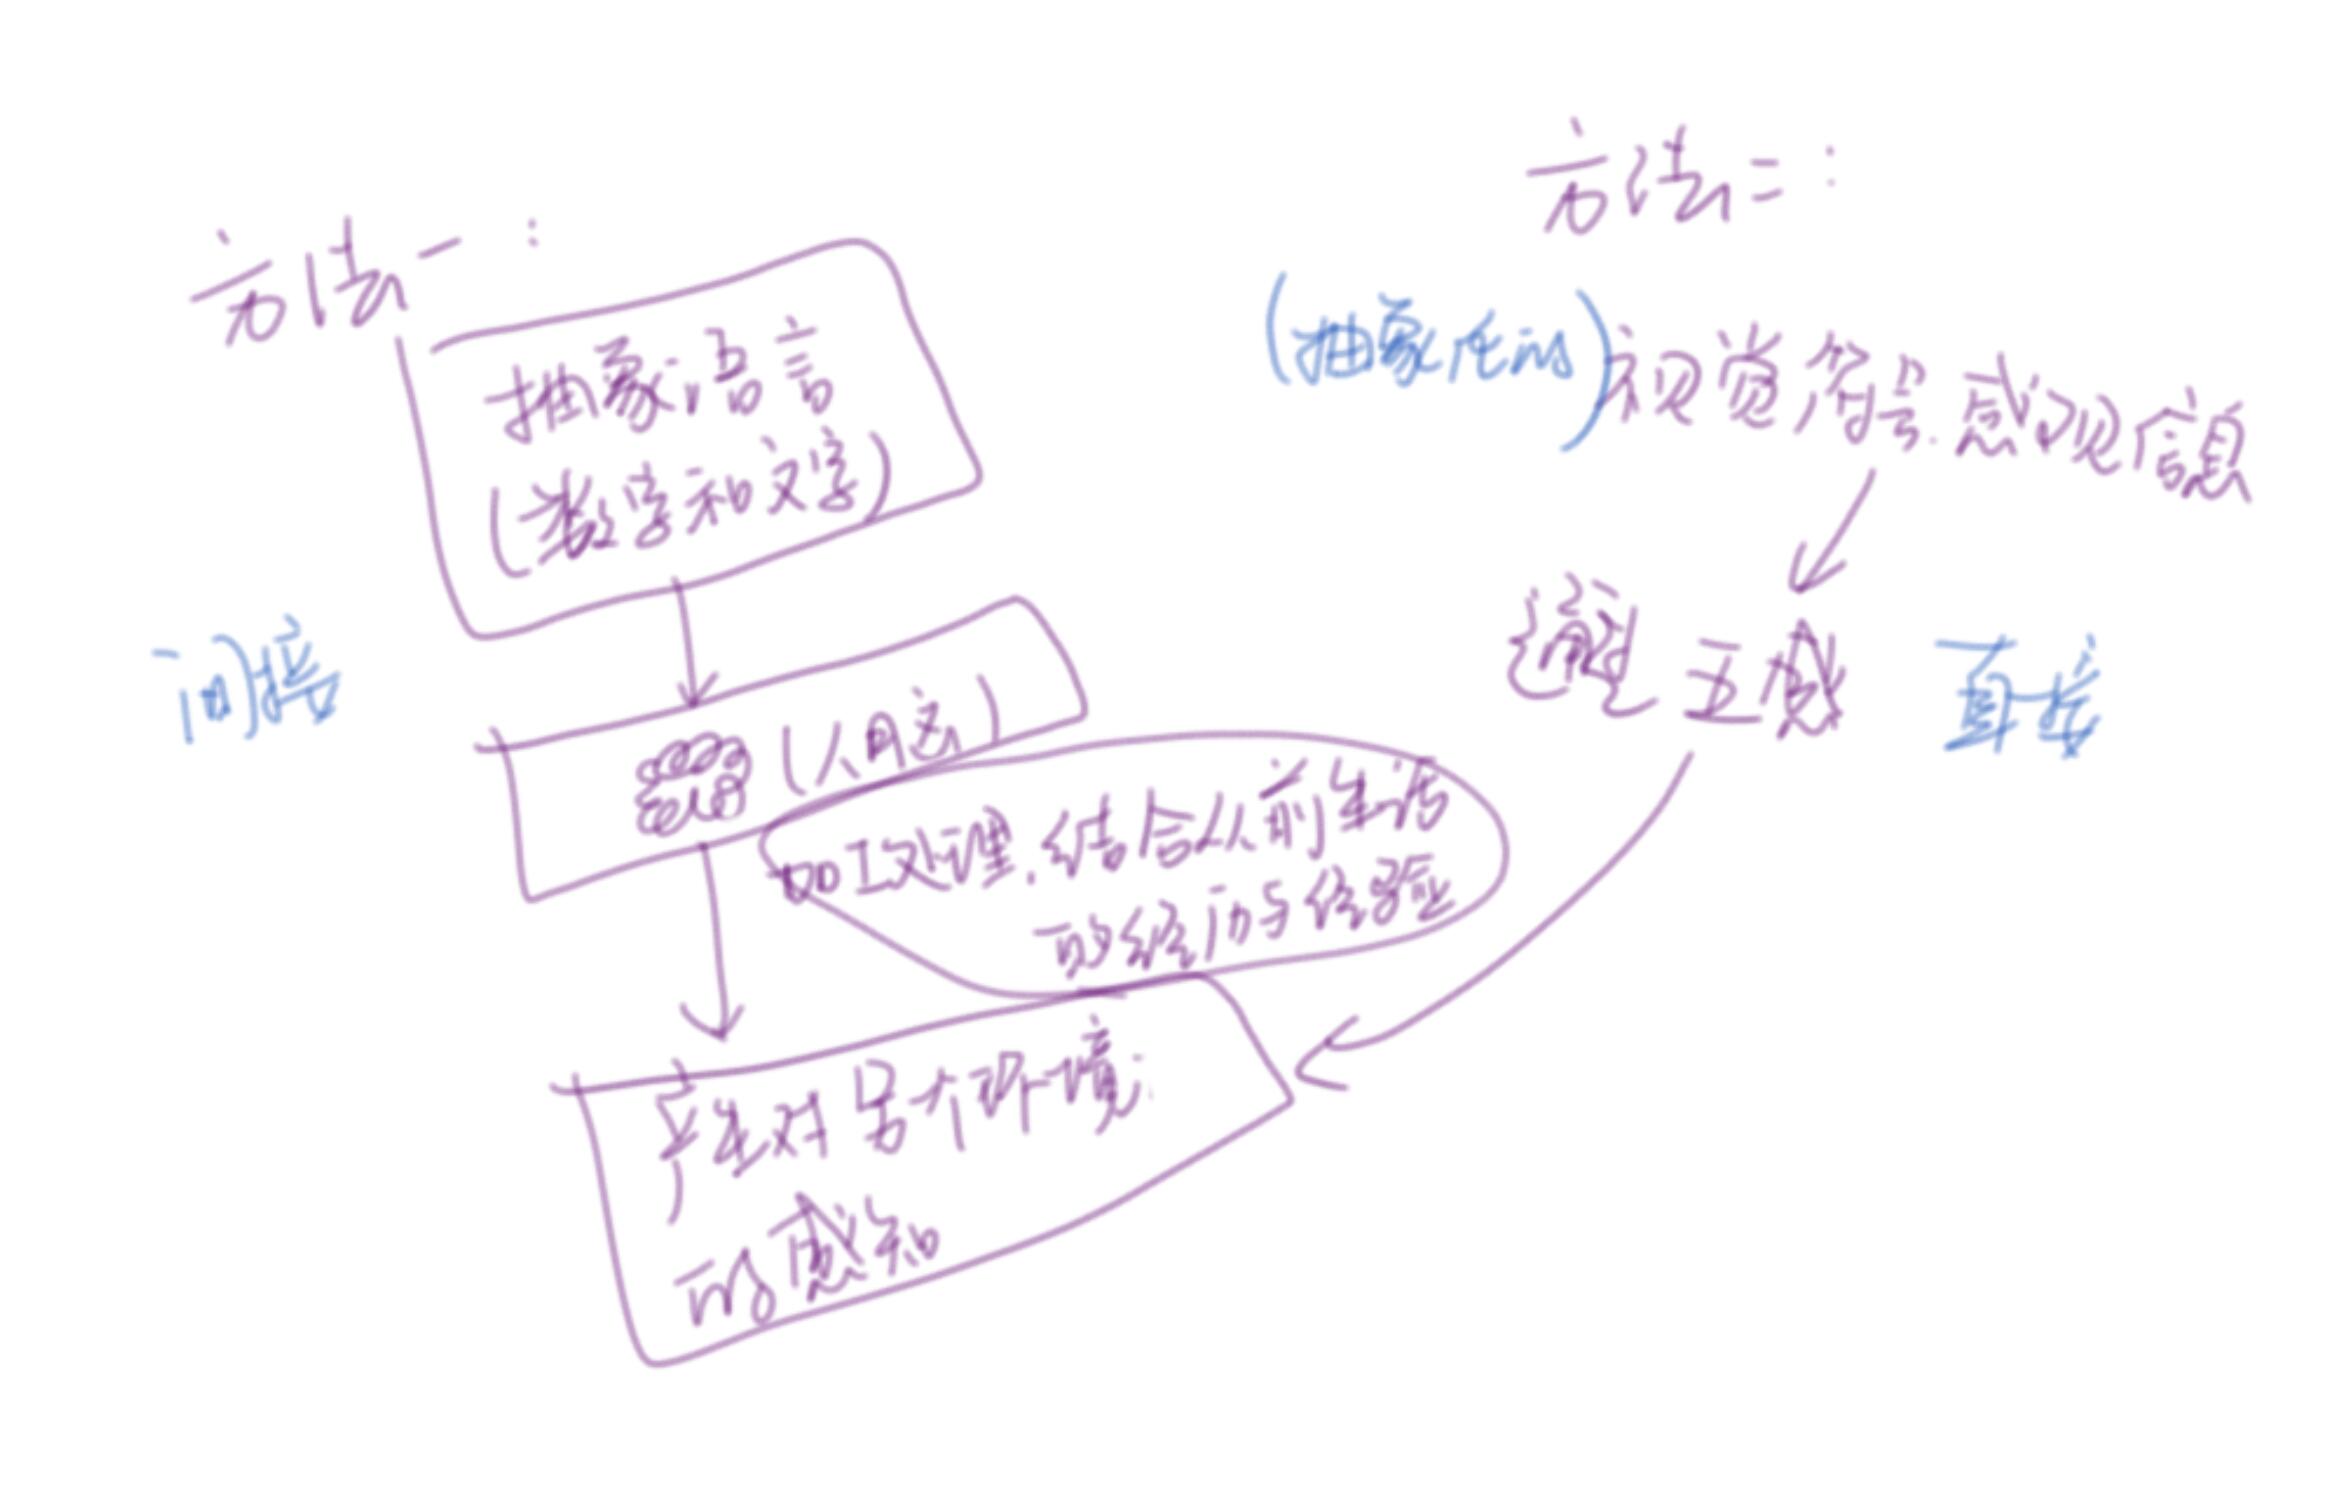 方法一：
抽象语言
（数学和文学）
间接
（人脑）
加工处理，结合从前生活
的经历与经验
产生对另个环境
的感知
方法二：
（抽象化的）视觉符号，感观信息
生成
直接